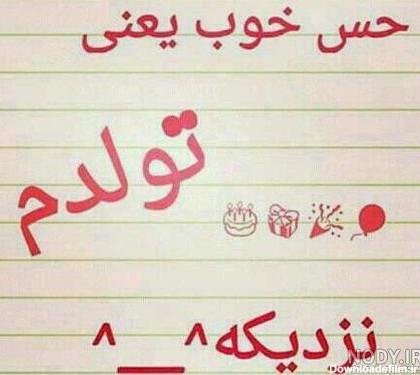 حس خوب یعنی
تولدم
نزدیکه ^__^
NODY.IR
Downloadefilm.ir